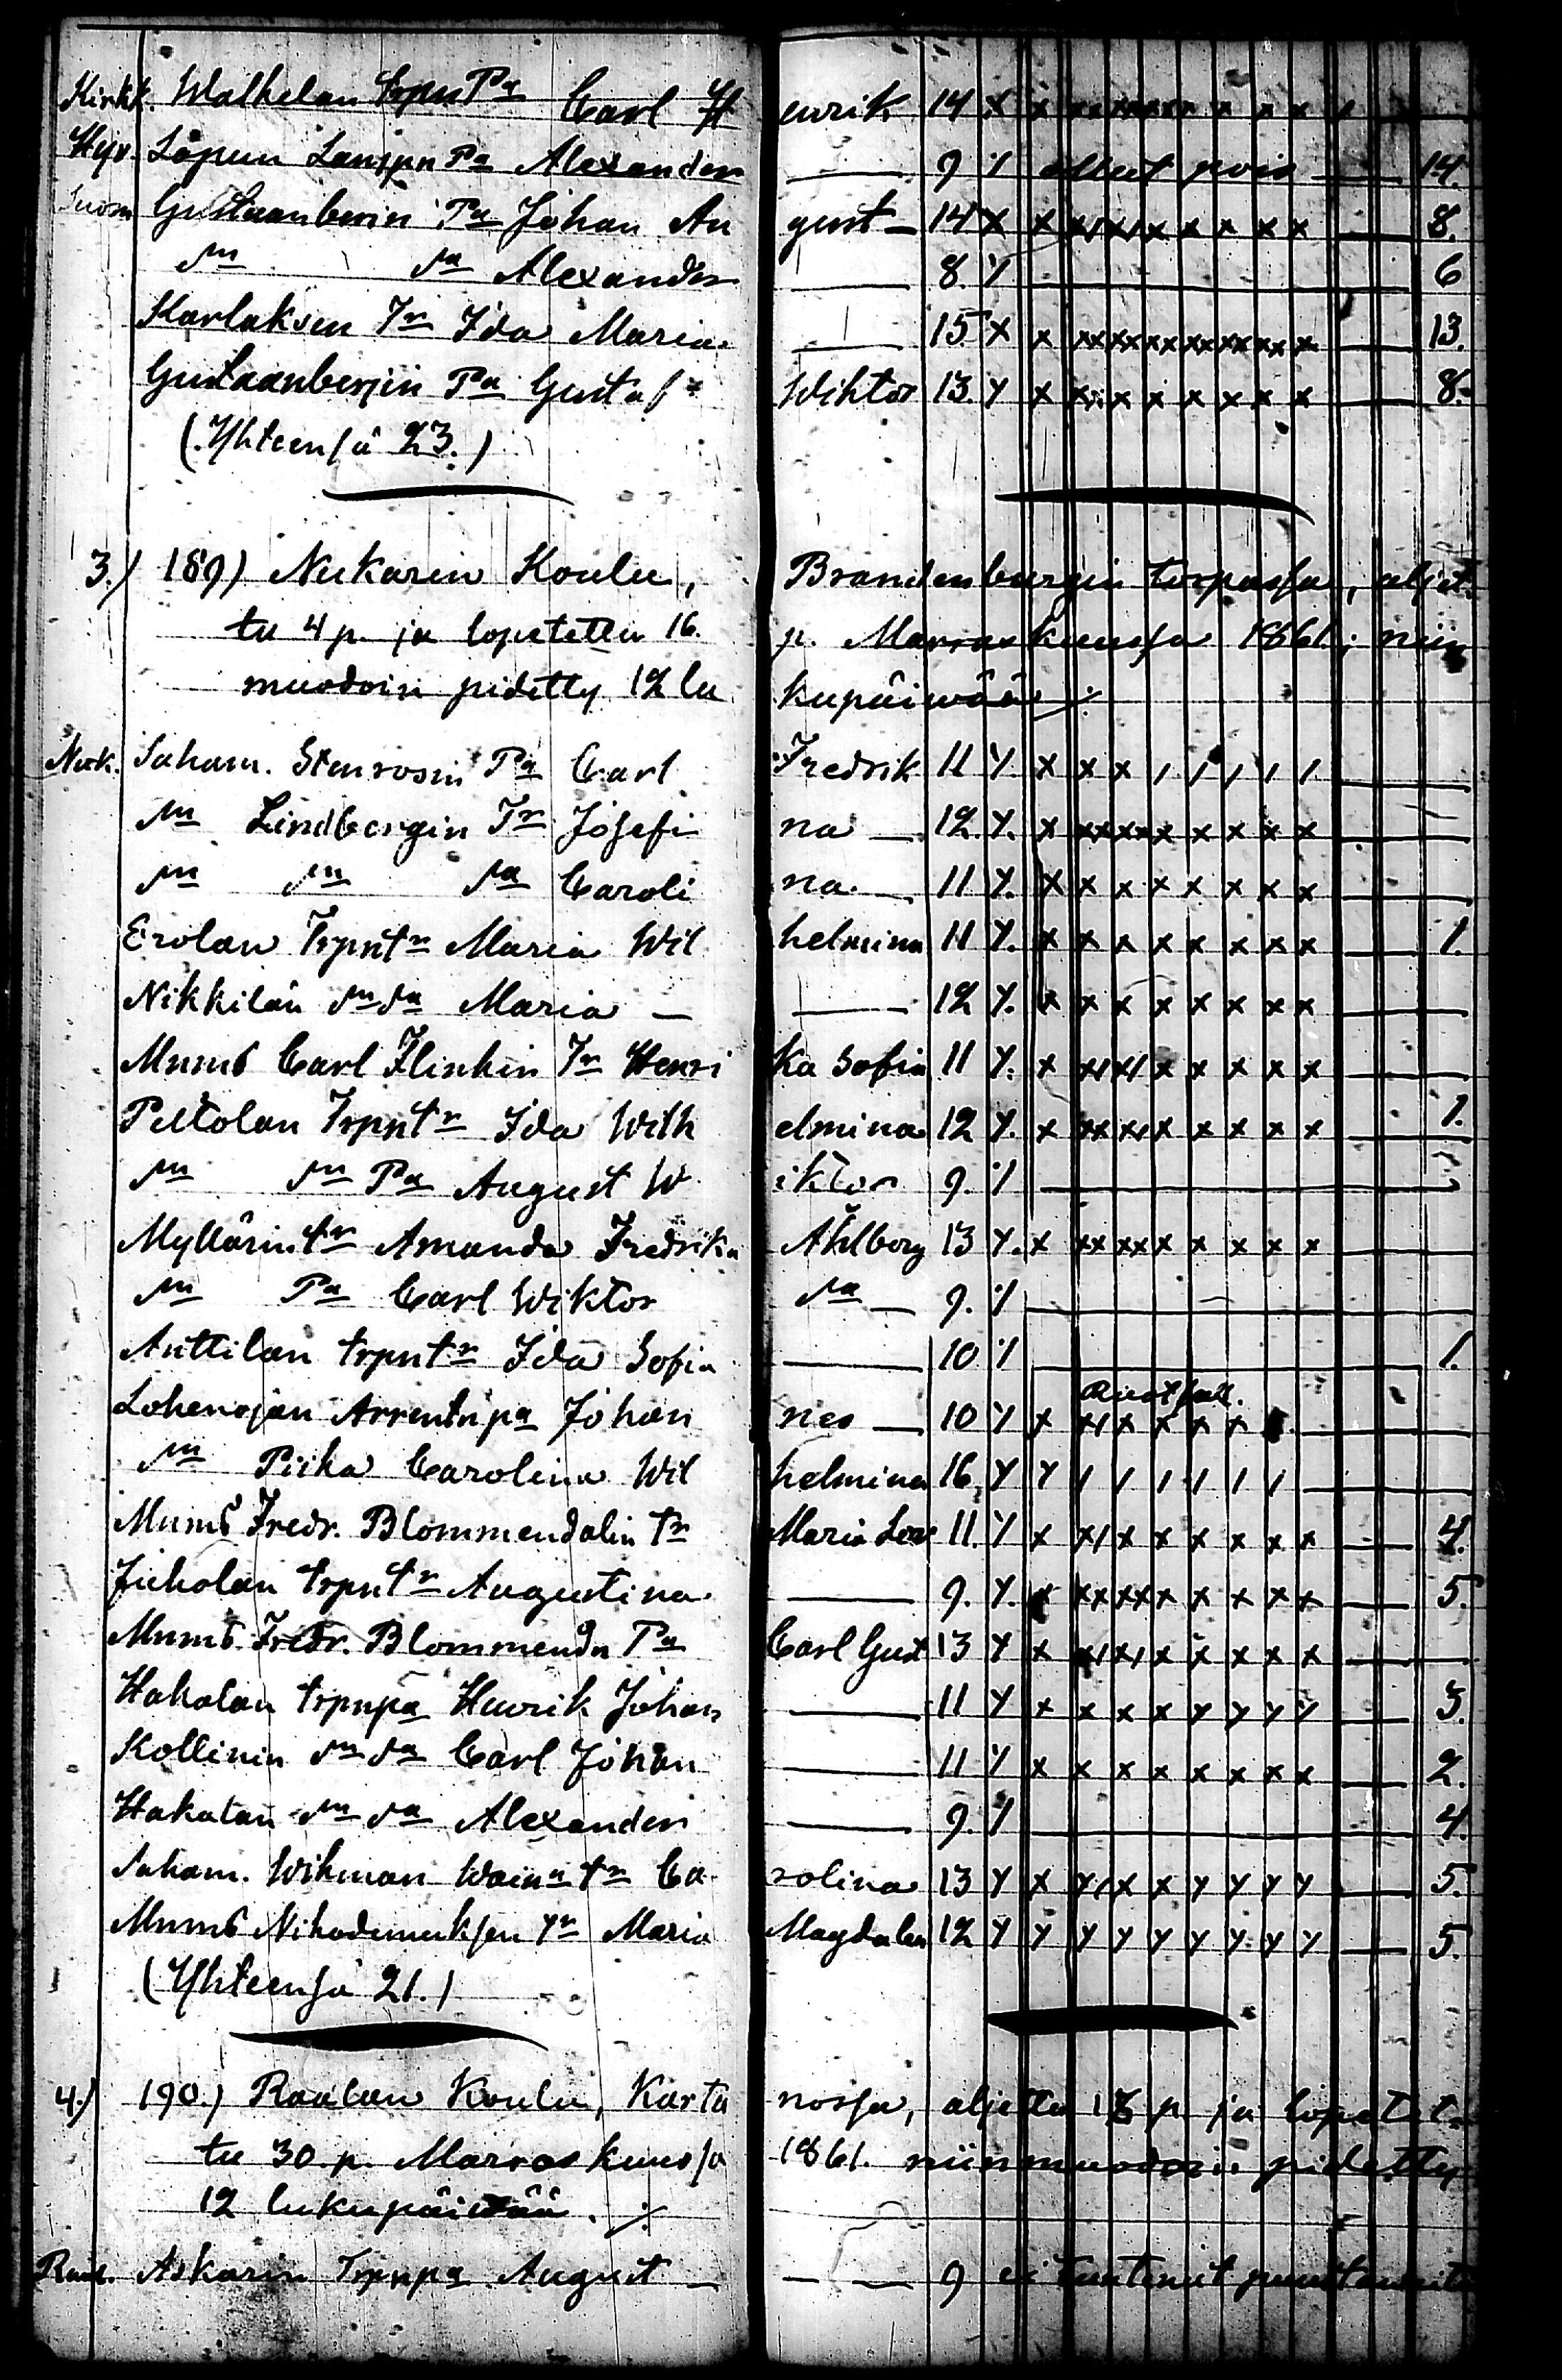 Kirkk. Walkelan trpn Pa Carl Henrik 14 x x xx xx xx x x x x
Hyv. Lopun Lampn Pa Alexander — 9 ollut pois — 14.
Suom Gustaanberin Pa Johan August — 14 x x x/x/x x x x x — 8.
dn da Alexander — 8. 6
Karlaksen Tr Ida Maria — 15 x x xx xx xx xx xx xx x — 13.
Gustaanberjin Pa Gustaf Wiktor 13. x x x x x x x x — 8.
(Yhteensä 23.)
3.) 189) Nukarin Koulu, Brandenburgin torpassa, aljet-
tu 4 p. ja lopetettu 16. p. Marraskuussa 1861.; niin
muodoin pidetty 12 lukupäiwää ./.
Nuk. Saham. Stenrosin Pa Carl Fredrik 11 x x x / / / / /
dn Lindbergin Tr Josefina — 12. x xx xx x x x x x
dn dn da Carolina — 11 x x x x x x x x
Erolan Trpn tr Maria Wilhelmina 11 x x x x x x x x — 1.
Nikkilän dn da Maria — 12 x x x x x x x x
Mums Carl Flinkin Tr Henrika Sofia 11 x x/x/ x x x x x
Peltolan Trpn tr Ida Wilhelmina 12 x xx x/x x x x x — 1.
dn dn Pa August Wiktor 9.
Myllärin tr Amanda Fredrika Åhlberg 13 x xx xx x x x x x
dn Pa Carl Wiktor da — 9.
Anttilan trpn tr Ida Sofia — 10 1.
Lohenojan Arrent. pa Johannes — 10 x x/x x x x
dn Piika Carolina Wilhelmina 16 / / / / / /
Mums Fredr. Blommendalin tr Maria Lov 11. x x/x x x x x x — 4.
Juholan trpn tr Augustina — 9. x xx xx x x x x x — 5.
Mums. Fredr. Blommendn Pa Carl Gust 13 x x/x/ x x x x x
Hakalan trpn pa Henrik Johan — 11 x x x x — 3.
Kollinin dn da Carl Johan — 11 x x x x x x x x — 2.
Hakalan dn da Alexander — 9. 4.
Saham. Wikman Wain. tr Carolina 13 x x x — 5.
Mums Nikodemuksen Tr Maria Magdalen 12 — 5.
(Yhteensä 21.)
4.) 190.) Raalan Koulu, Kartanossa, aljettu p. ja lopetet-
tu 30. p. Marraskuussa 1861. niinmuodoin pidetty
12 lukupäiwää. ./.
Raal. Askarin Trpn pa August — — 9 ei tuntenut